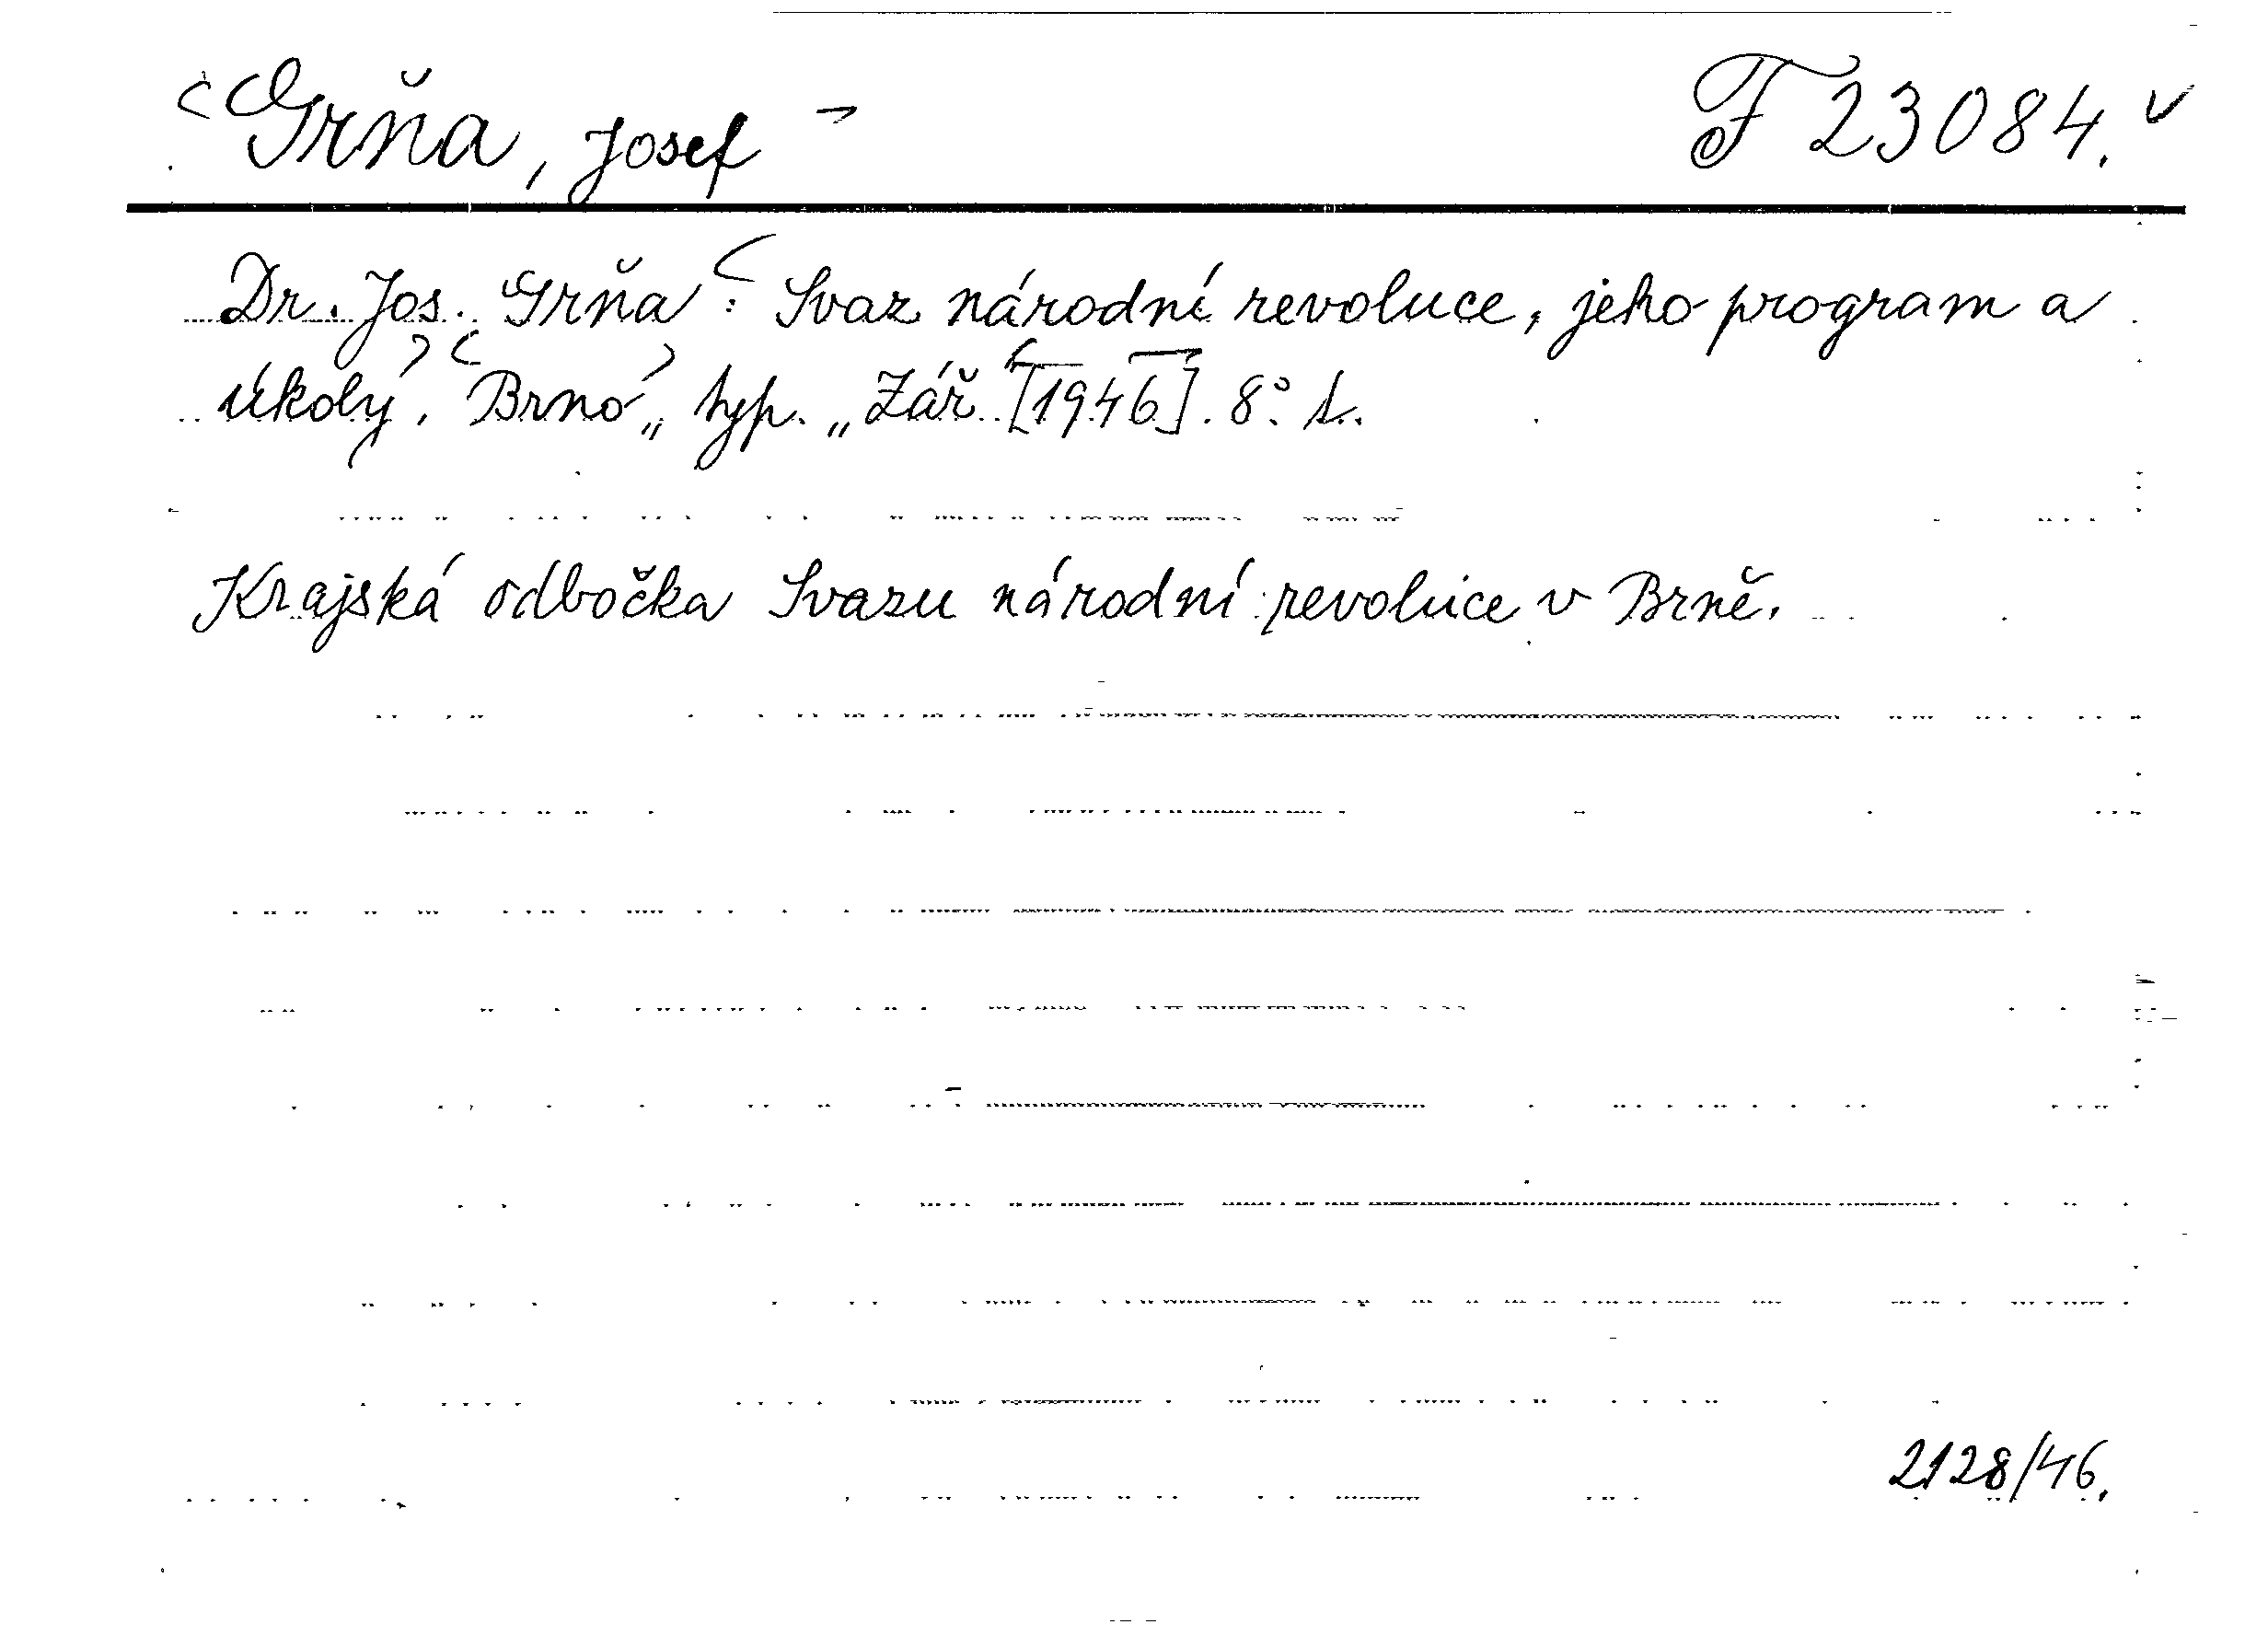 Grňa, Josef F 23084.
Dr. Jos. Grňa: Svaz národní revoluce, jeho program a
úkoly. Brno, typ. „Zář" [1946]. 8°.
Krajská odbočka Svazu národní revoluce v Brně.
2128/46.